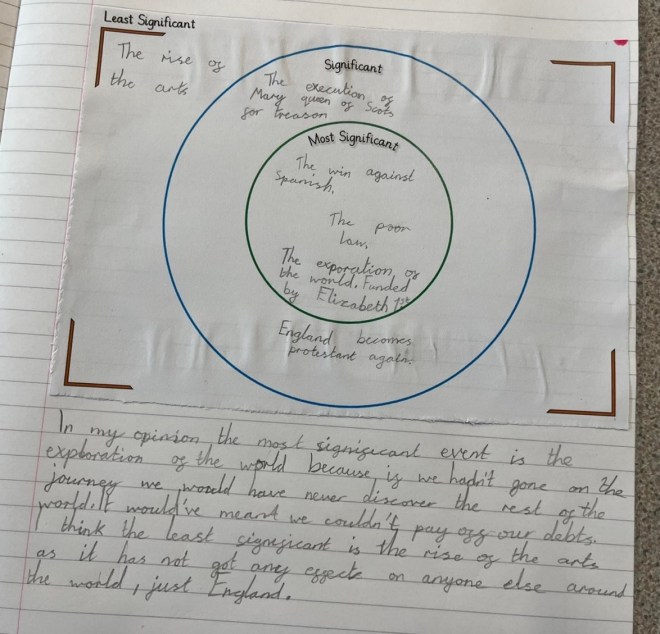 Least Significant
The rise of
the arts
Significant
The execution of
Mary queen of Scots
for treason
Most Significant
The win against
Spanish.
The poor
law.
The exporation of
the world. Funded
by Elizabeth 1st
England becomes
protestant again.
In my opinion, the most significant event is the
exploration of the world because, if we hadn't gone on the
journey we would have never discover the rest of the
world. It would've meant we couldn't pay off our debts.
I think the least significant is the rise of the arts
as it has not got any effects on anyone else around
the world, just England.